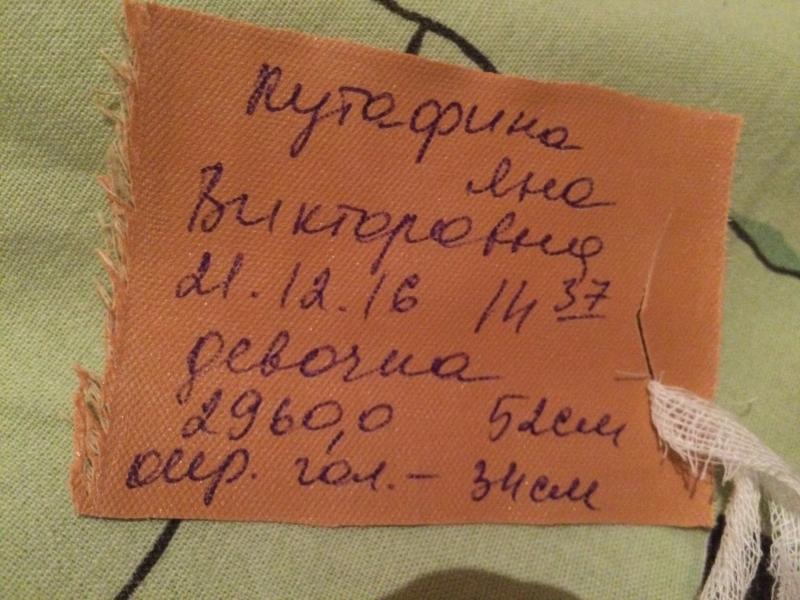 Кутафина
Яна
Викторовна
21.12.16 14 37
девочка
2960,0 52см
окр. гол. – 34см